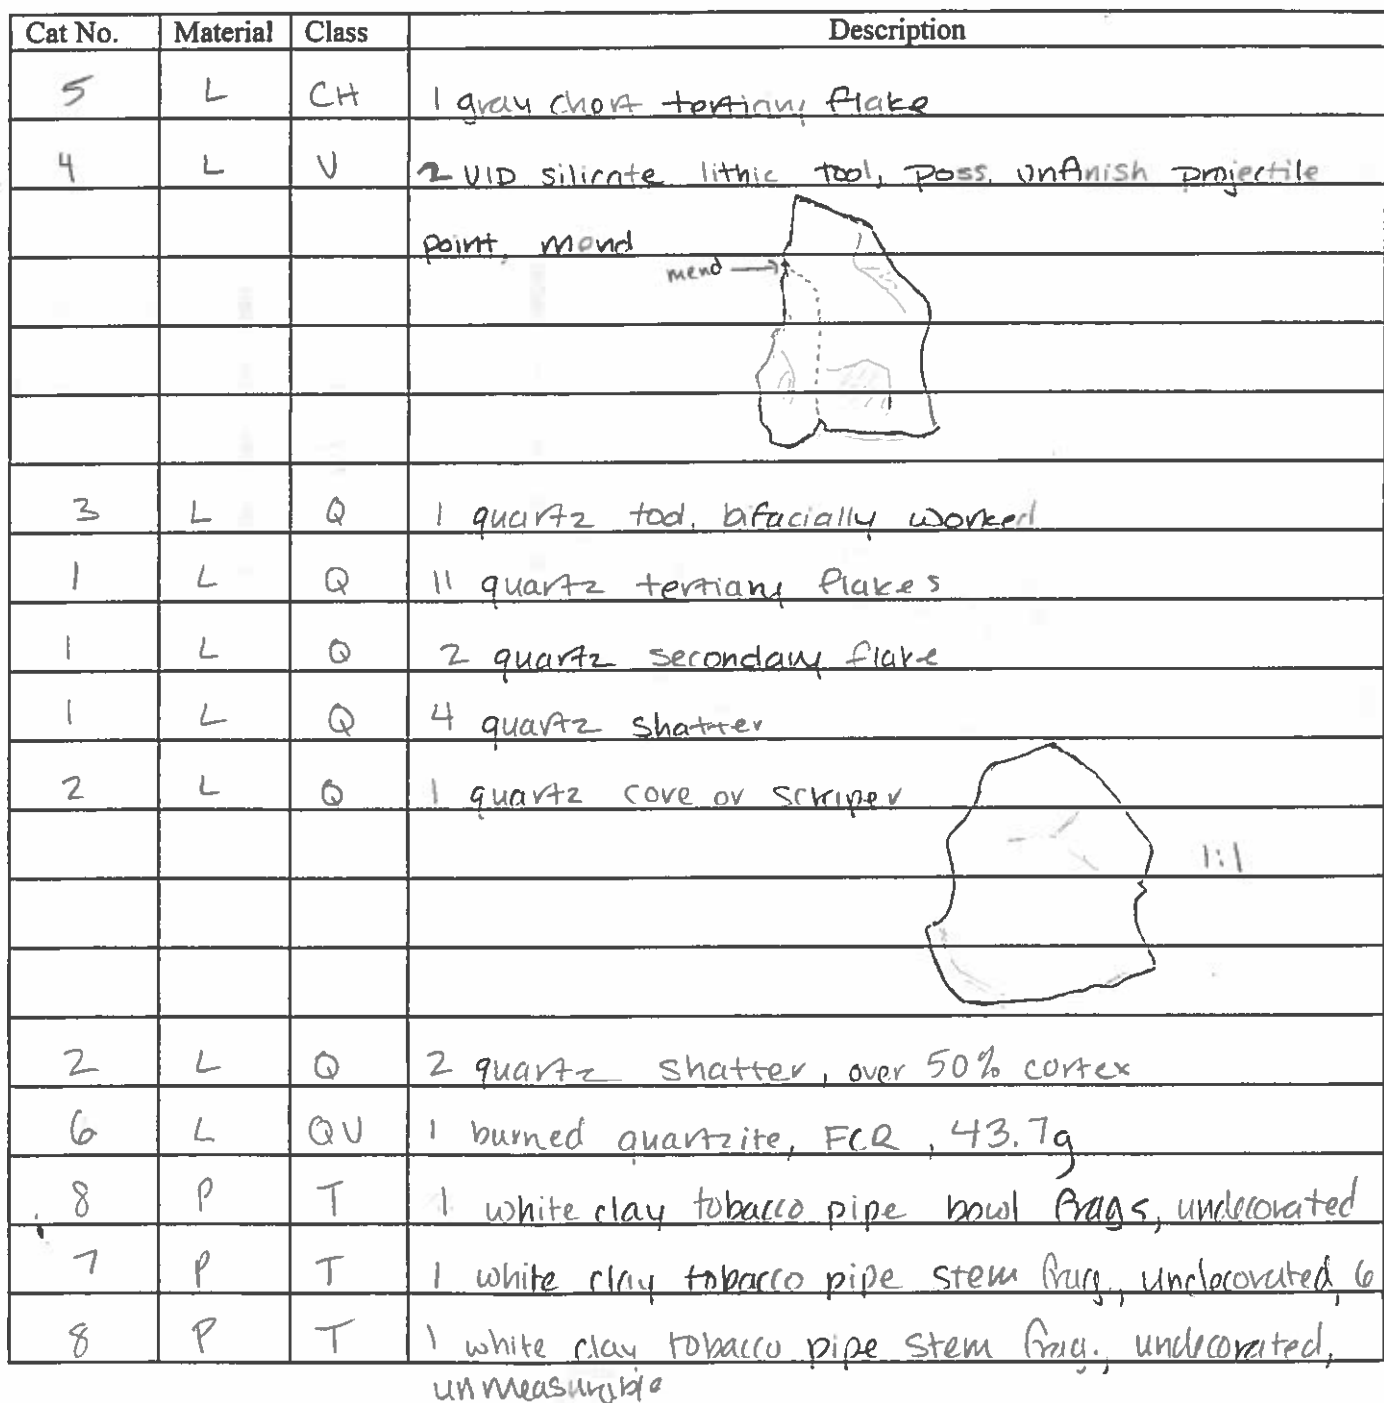 Cat No. Material Class Description
5 L CH 1 gray chert tertiary flake
4 L U 2 UID silicate lithic tool, poss. unfinish projectile
point, mend
mend
3 L Q 1 quartz tool, bifacially worked
1 L Q 11 quartz tertiary flakes
1 L Q 2 quartz secondary flake
1 L Q 4 quartz shatter
2 L Q 1 quartz core or scraper
1:1
2 L Q 2 quartz shatter, over 50% cortex
6 L QU 1 burned quartzite, FCR, 43.7g
8 P T 1 white clay tobacco pipe bowl frags, undecorated
7 P T 1 white clay tobacco pipe stem frag., undecorated, 6
8 P T 1 white clay tobacco pipe stem frag., undecorated,
unmeasurable